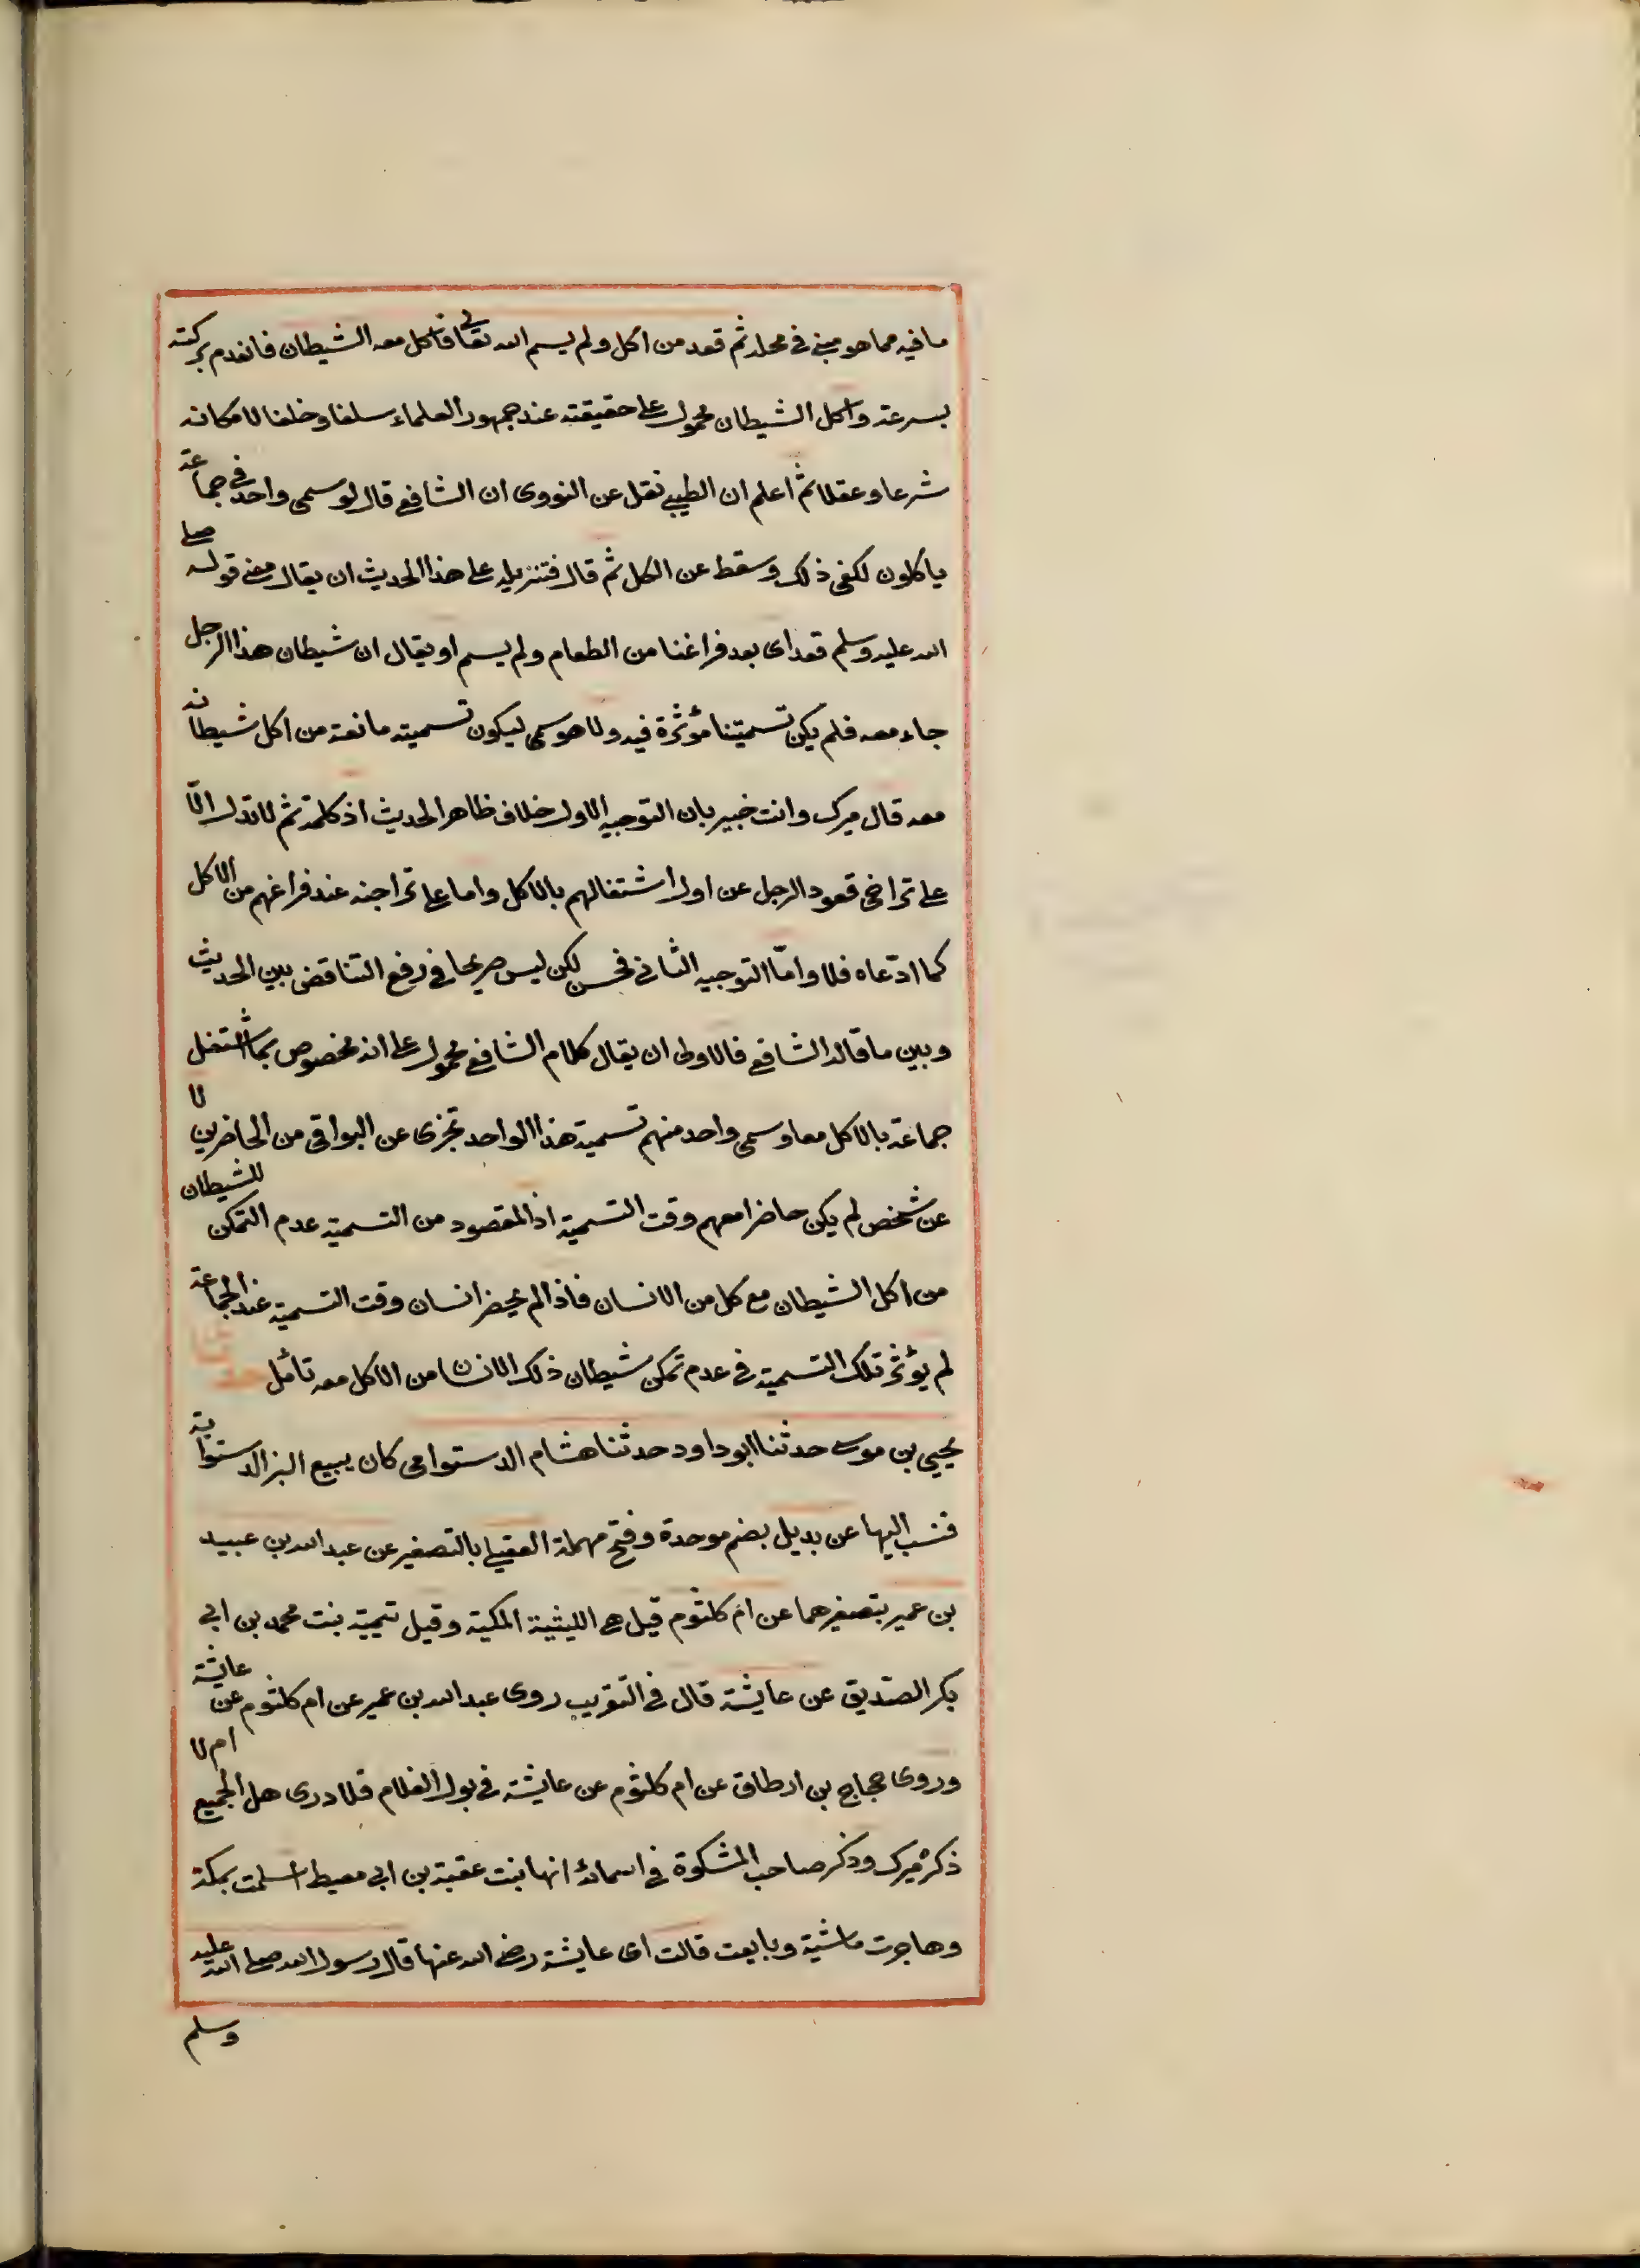 ما فيه مما هو مبنى فى محله ثم قعد من اكل ولم يسم الله تعالى فاكل معه الشيطان فانعدم بركته
بسرعة واكل الشيطان محمول على حقيقته عند جمهور العلماء سلفا وخلفا لامكانه
شرعا وعقلا ثم اعلم ان الطيبى نقل عن النووى ان الشافعى قال لو سمى واحد فى جماعة
ياكلون لكفى ذلك وسقط عن الكل ثم قال فتنزيله على هذا الحديث ان يقال معنى قوله صلى
الله عليه وسلم قعد اى بعد فراغنا من الطعام ولم يسم او يقال ان شيطان هذا الرجل
جاء معه فلم يكن تسميتنا مؤثرة فيه ولا هو سمى ليكون تسميته مانعة من اكل شيطانه
معه قال ميرك وانت خبير بان التوجيه الاول خلاف ظاهر الحديث اذ كلمة ثم لا تدل الّا
على تراخى قعود الرجل عن اول اشتغالهم بالاكل واما على تراخيه عند فراغهم من الاكل
كما ادّعاه فلا وامّا التوجيه الثانى فحسن لكن ليس صريحا فى رفع التناقض بين الحديث
وبين ما قاله الشافعى فالاولى ان يقال كلام الشافعى محمول على انه مخصوص بما اشتغل
جماعة بالاكل معا وسمى واحد منهم تسمية هذا الواحد تجزى عن البواقى من الحاضرين لا
عن شخص لم يكن حاضرا معهم وقت التسمية اذ المقصود من التسمية عدم التمكن للشيطان
من اكل الشيطان مع كل من الانسان فاذا لم يحضر انسان وقت التسمية عند الجماعة
لم يؤثر تلك التسمية فى عدم تمكن شيطان ذلك الانسان من الاكل معه تامّل حدثنا
يحيى بن موسى حدثنا ابو داود حدثنا هشام الدستوائى كان يبيع البز الدستوائية
فنسب اليها عن بديل بضم موحدة وفتح مهملة العقيلى بالتصغير عن عبد الله بن عبيد
بن عمير بتصغيرهما عن ام كلثوم قيل هى الليثية المكية وقيل تيمية بنت محمد بن ابى
بكر الصدّيق عن عايشة قال فى التقريب روى عبد الله بن عمير عن ام كلثوم عن عايشة
وروى حجاج بن ارطاة عن ام كلثوم عن عايشة فى بول الغلام فلا ادرى هل الجميع ام لا
ذكره ميرك وذكر صاحب المشكوة فى اسمائه انها بنت عقبة بن ابى معيط اسلمت بمكة
وهاجرت ماشية وبايعت قالت اى عايشة رضى الله عنها قال رسول الله صلى الله عليه
وسلم